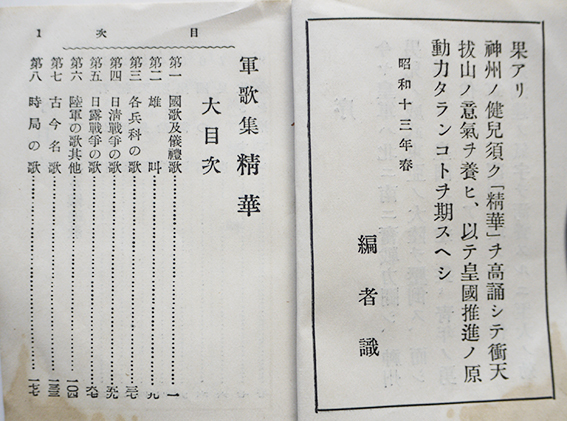 果アリ
神州ノ健兒須ク「精華」ヲ高誦シテ衝天
拔山ノ意氣ヲ養ヒ、以テ皇國推進ノ原
動力タランコトヲ期スヘシ
昭和十三年春
編者識
目次 1
軍歌集精華
大目次
第一 國歌及儀禮歌 一
第二 雄叫 九
第三 各兵科の歌
第四 日清戰爭の歌
第五 日露戰爭の歌
第六 陸軍の歌其他 一〇四
第七 古今名歌
第八 時局の歌